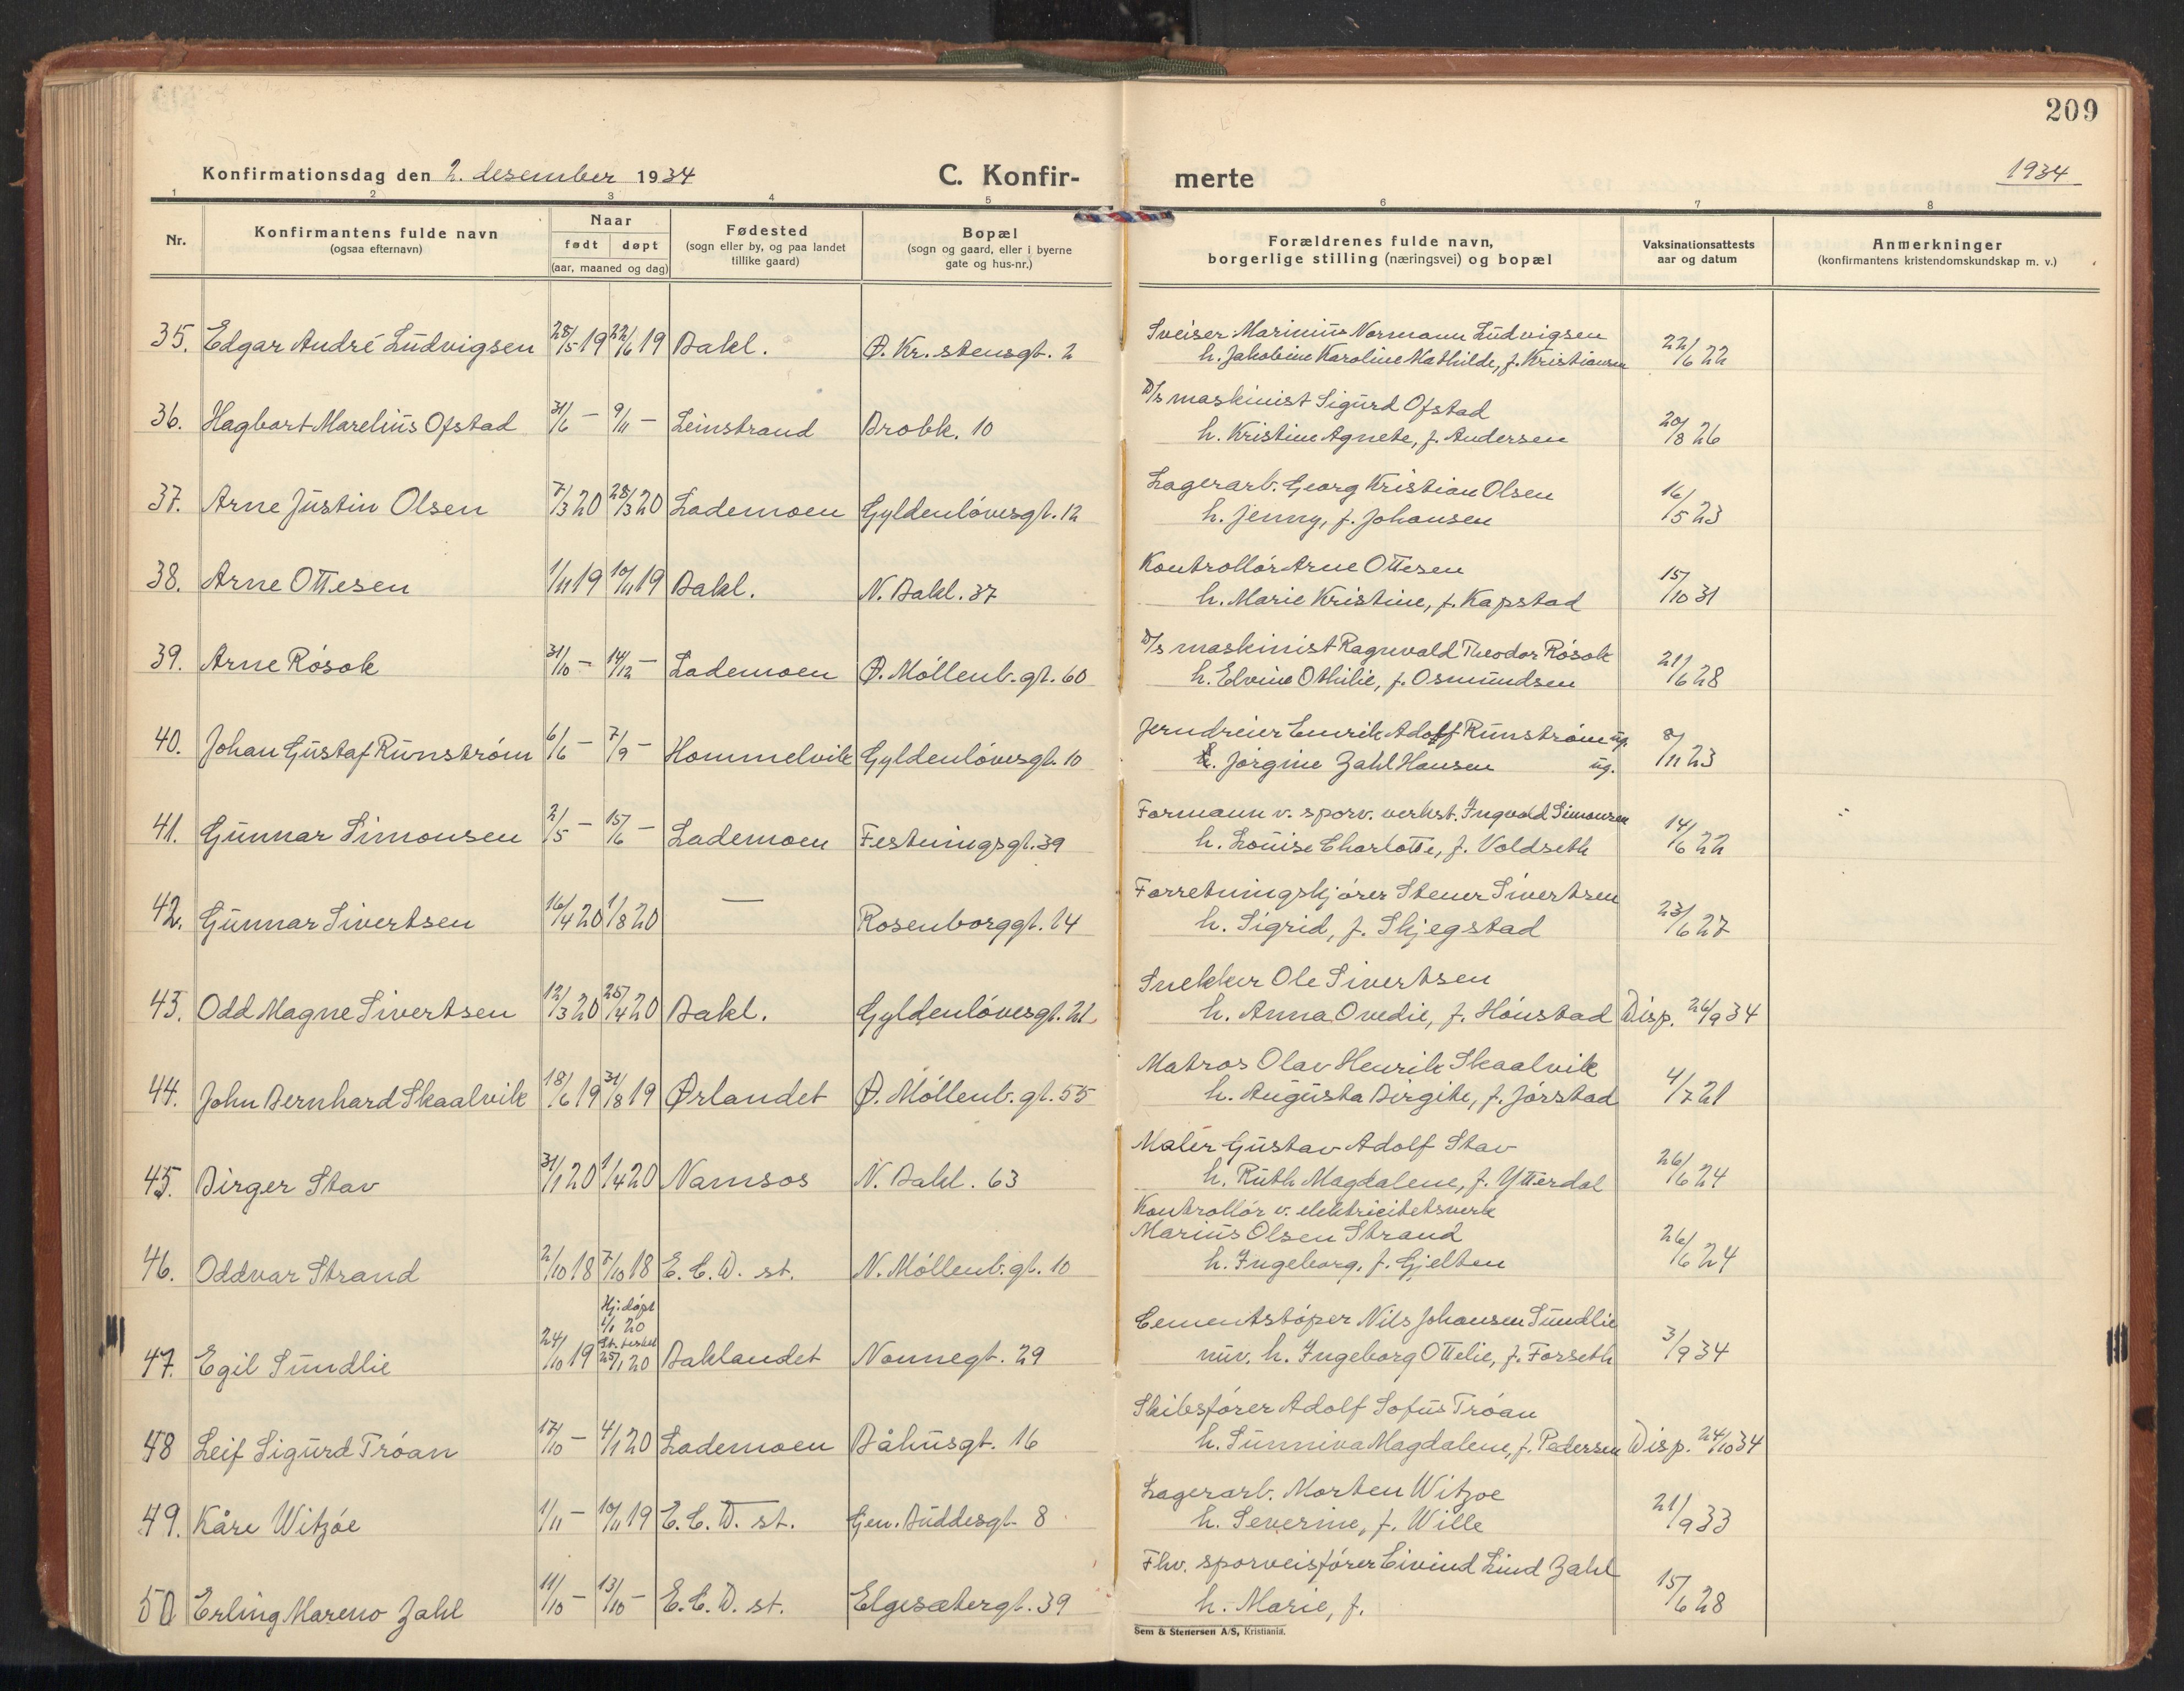 209
Konfirmationsdag den 2. desember 1934
C. Konfir-
merte
1934
1 2 3 4 5 6 7 8
Nr.
Konfirmantens fulde navn
(ogsaa efternavn)
Naar
født døpt
(aar, maaned og dag)
Fødested
(sogn eller by, og paa landet
tillike gaard)
Bopæl
(sogn og gaard, eller i byerne
gate og hus-nr.)
Forældrenes fulde navn,
borgerlige stilling (næringsvei) og bopæl
Vaksinationsattests
aar og datum
Anmerkninger
(konfirmantens kristendomskundskap m. v.)
Sveiser Marinius Normann Ludvigsen
35. Edgar André Ludvigsen 28/5 19 22/6 19 Bakl. Ø. Kr.stensgt. 2 h. Jakobine Karoline Mathilde, f. Kristiansen 22/6 22
D/s maskinist Sigurd Ofstad
36. Hagbart Marelius Ofstad 31/6 – 9/11 – Leinstrand Brobk. 10 h. Kristine Agnete, f. Andersen 20/8 26
Lagerarb. Georg Kristian Olsen
37. Arne Justin Olsen 7/3 20 28/3 20 Lademoen Gyldenløvesgt. 12 h. Jenny, f. Johansen 16/5 23
Kontrollør Arne Ottesen
38. Arne Ottesen 1/11 19 10/11 19 Bakl. N. Bakl. 37 h. Marie Kristine, f. Kapstad 15/10 31
D/s maskinist Ragnvald Theodor Røsok
39. Arne Røsok 31/10 – 14/12 – Lademoen Ø. Møllenb.gt. 60 h. Edvine Othilie, f. Osmundsen 21/6 28
Jerndreier Henrik Adolf Runstrøm ug.
40. Johan Gustaf Runstrøm 6/6 – 7/9 – Hommelvik Gyldenløvesgt. 10 Jørgine Zahl Hansen ug. 8/11 23
Formann v. sporv. verkst. Ingvald Simonsen
41. Gunnar Simonsen 2/5 – 15/6 – Lademoen Festningsgt. 39 h. Louise Charlotte, f. Voldseth 14/6 22
Forretningskjører Stener Sivertsen
42. Gunnar Sivertsen 16/4 20 1/8 20 — Rosenborggt. 14 h. Sigrid, f. Skjegstad 23/6 27
Snekker Ole Sivertsen
43. Odd Magne Sivertsen 12/3 20 25/4 20 Bakl. Gyldenløvesgt. 21 h. Anna Ovedie, f. Hønstad Disp. 26/9 34
Matros Olav Henrik Skaalvik
44. John Bernhard Skaalvik 18/6 19 31/8 19 Ørlandet Ø. Møllenb.gt. 55 h. Augusta Birgite, f. Jørstad 4/7 21
Maler Gustav Adolf Stav
45. Birger Stav 31/1 20 1/4 20 Namsos N. Bakl. 63 h. Ruth Magdalene, f. Ytterdal 26/6 24
Kontrollør v. elektricitetsverk
Marius Olsen Strand
46. Oddvar Strand 2/10 18 7/10 18 E. C. D. st. N. Møllenb.gt. 10 h. Ingeborg, f. Gjelten 26/6 24
Hj.døpt
1/1 20
Cementstøper Nils Johansen Sundlie
47. Egil Sundlie 24/10 19 25/1 20 Baklandet Nonnegt. 29 nuv. h. Ingeborg Ottelie, f. Forseth 3/9 34
Skibsfører Adolf Sofus Trøan
48 Leif Sigurd Trøan 17/10 – 4/1 20 Lademoen Båhusgt. 16 h. Sunniva Magdalene, f. Pedersen Disp. 24/10 34
Lagerarb. Morten Witzøe
49. Kåre Witzøe 1/11 – 10/11 19 E. C. D. st. Gen. Buddesgt. 8 h. Severine, f. Wille 21/9 33
Fhv. sporveisfører Eivind Lind Zahl
50 Erling Mareno Zahl 11/10 – 13/10 – E. C. D. st. Elgesætergt. 39 h. Marie, f. 15/6 28
Sem & Stenersen A/S, Kristiania.